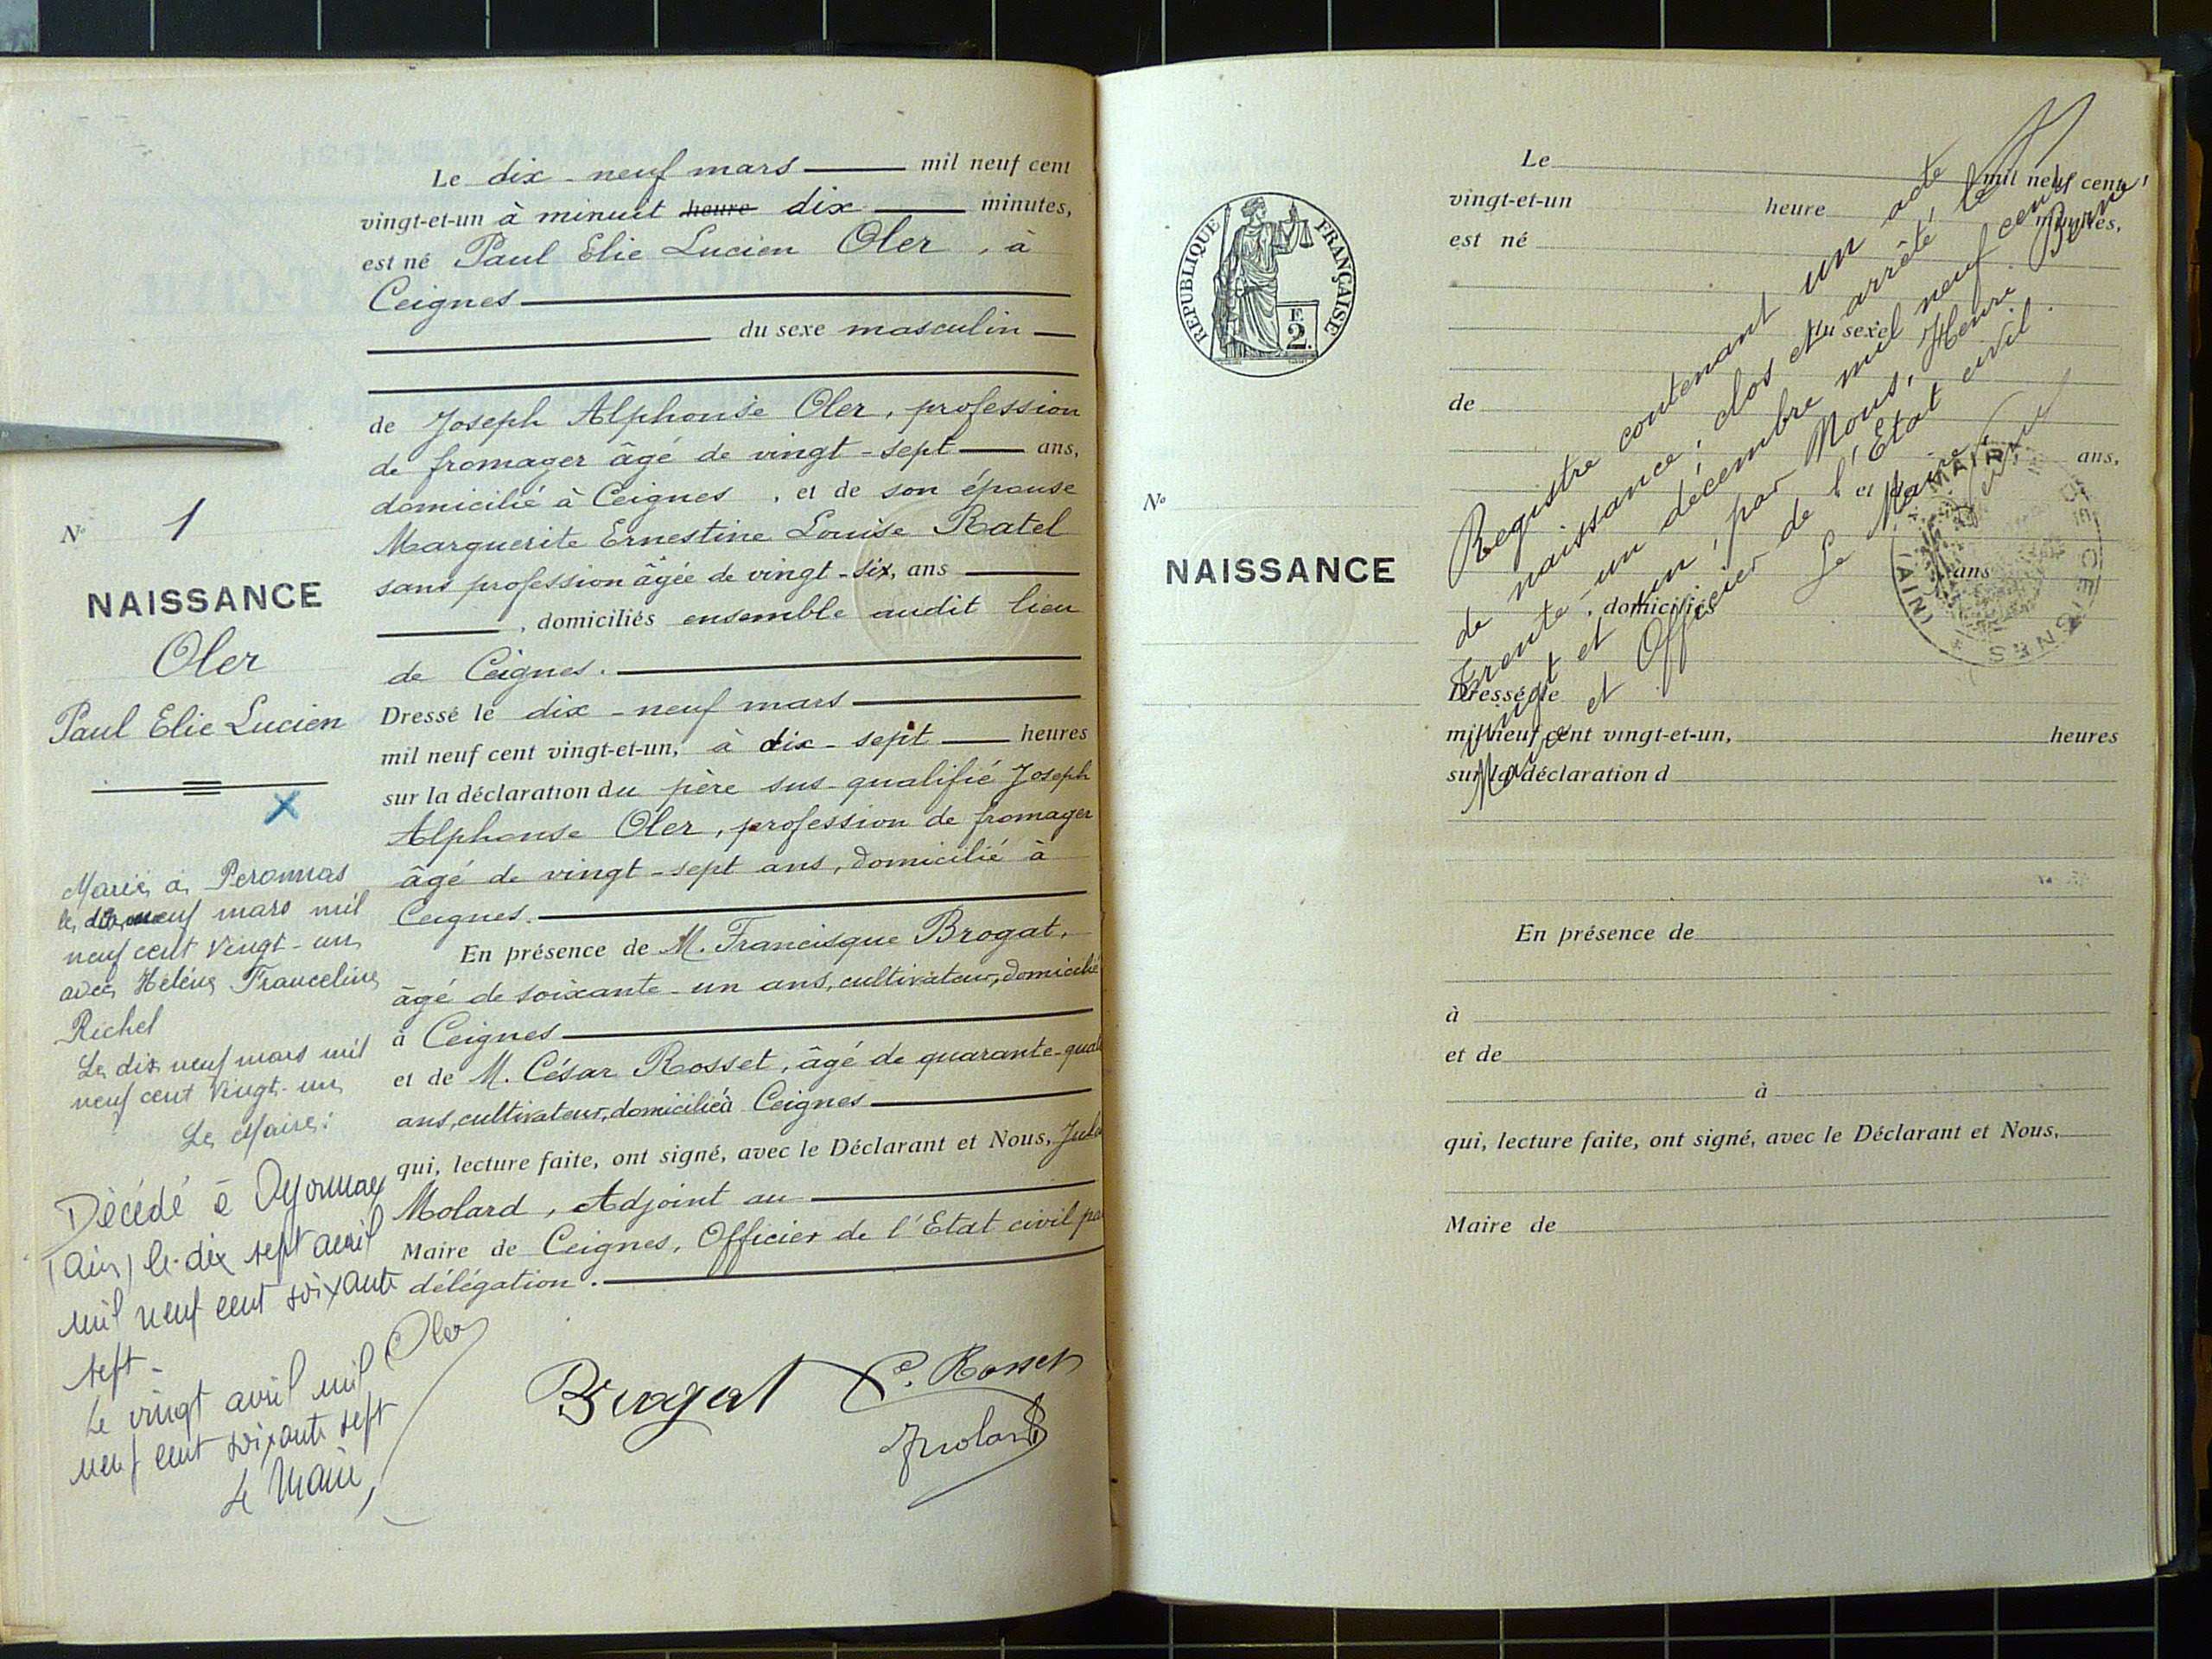 N° 1
NAISSANCE
Oler
Paul Elie Lucien
Marié à Peronnas
le dix neuf mars mil
neuf cent vingt-un
avec Hélène Franceline
Richel
Le dix neuf mars mil
neuf cent vingt-un
Le Maire:
Décédé à Oyonnax
(Ain) le dix sept avril
mil neuf cent soixante
sept -
Le vingt avril mil
neuf cent soixante sept
Le Maire,
Le dix-neuf mars mil neuf cent
vingt-et-un à minuit heure dix minutes,
est né Paul Elie Lucien Oler, à
Ceignes
du sexe masculin
de Joseph Alphonse Oler, profession
de fromager âgé de vingt-sept ans,
domicilié à Ceignes, et de son épouse
Marguerite Ernestine Louise Ratel
sans profession âgée de vingt-six, ans
, domiciliés ensemble audit lieu
de Ceignes.
Dressé le dix-neuf mars
mil neuf cent vingt-et-un, à dix-sept heures
sur la déclaration du père sus-qualifié Joseph
Alphonse Oler, profession de fromager
âgé de vingt-sept ans, domicilié à
Ceignes.
En présence de M. Francisque Brogat,
âgé de soixante-un ans, cultivateur, domicilié
à Ceignes
et de M. César Rosset, âgé de quarante-
ans, cultivateur, domicilié à Ceignes
qui, lecture faite, ont signé, avec le Déclarant et Nous,
Molard, Adjoint au
Maire de Ceignes, Officier de l'Etat civil
délégation.
Oler
Brogat C. Rosset
Molard
REPUBLIQUE FRANÇAISE
E
2.
N°
NAISSANCE
Le mil neuf cent
vingt-et-un heure minutes,
est né
du sexe
de
ans,
et
ans
, domiciliés
Dressé le
mil neuf cent vingt-et-un, heures
sur la déclaration d
En présence de
à
et de
à
qui, lecture faite, ont signé, avec le Déclarant et Nous,
Maire de
Registre contenant un acte
de naissance, clos et arrêté, le
trente-un décembre mil neuf cent
vingt et un, par Nous, Henri
Maire et Officier de l'Etat civil.
Le Maire
MAIRIE DE CEIGNES
(AIN)